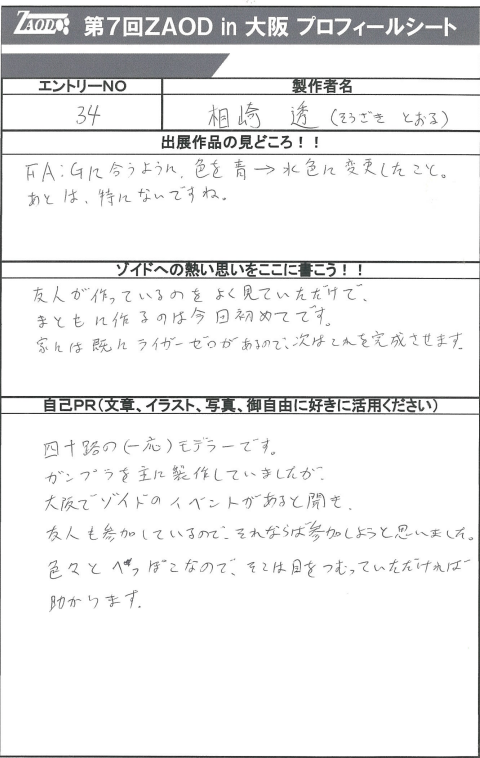 ZAOD 第7回ZAOD in 大阪 プロフィールシート
エントリーNO 製作者名
34 相崎 透 (そうざき とおる)
出展作品の見どころ！！
FA:Gに合うように、色を青→水色に変更したこと。
あとは、特にないですね。
ゾイドへの熱い思いをここに書こう！！
友人が作っているのをよく見ていただけで、
まともに作るのは今回初めてです。
家には既にライガーゼロがあるので、次はこれを完成させます。
自己PR(文章、イラスト、写真、御自由に好きに活用ください)
四十路の(一応)モデラーです。
ガンプラを主に製作していましたが、
大阪でゾイドのイベントがあると聞き、
友人も参加しているので、それならば参加しようと思いました。
色々とへっぽこなので、そこは目をつむっていただければ
助かります。